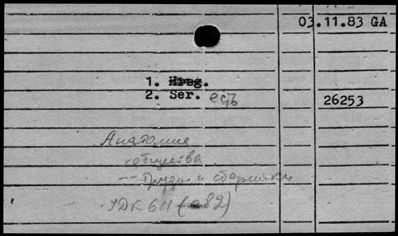 03.11.83 GA
1. Hreg.
2. Ser. есть
26253
Анатомия
общества
-- Труды и сборники
УДК 611 (082)